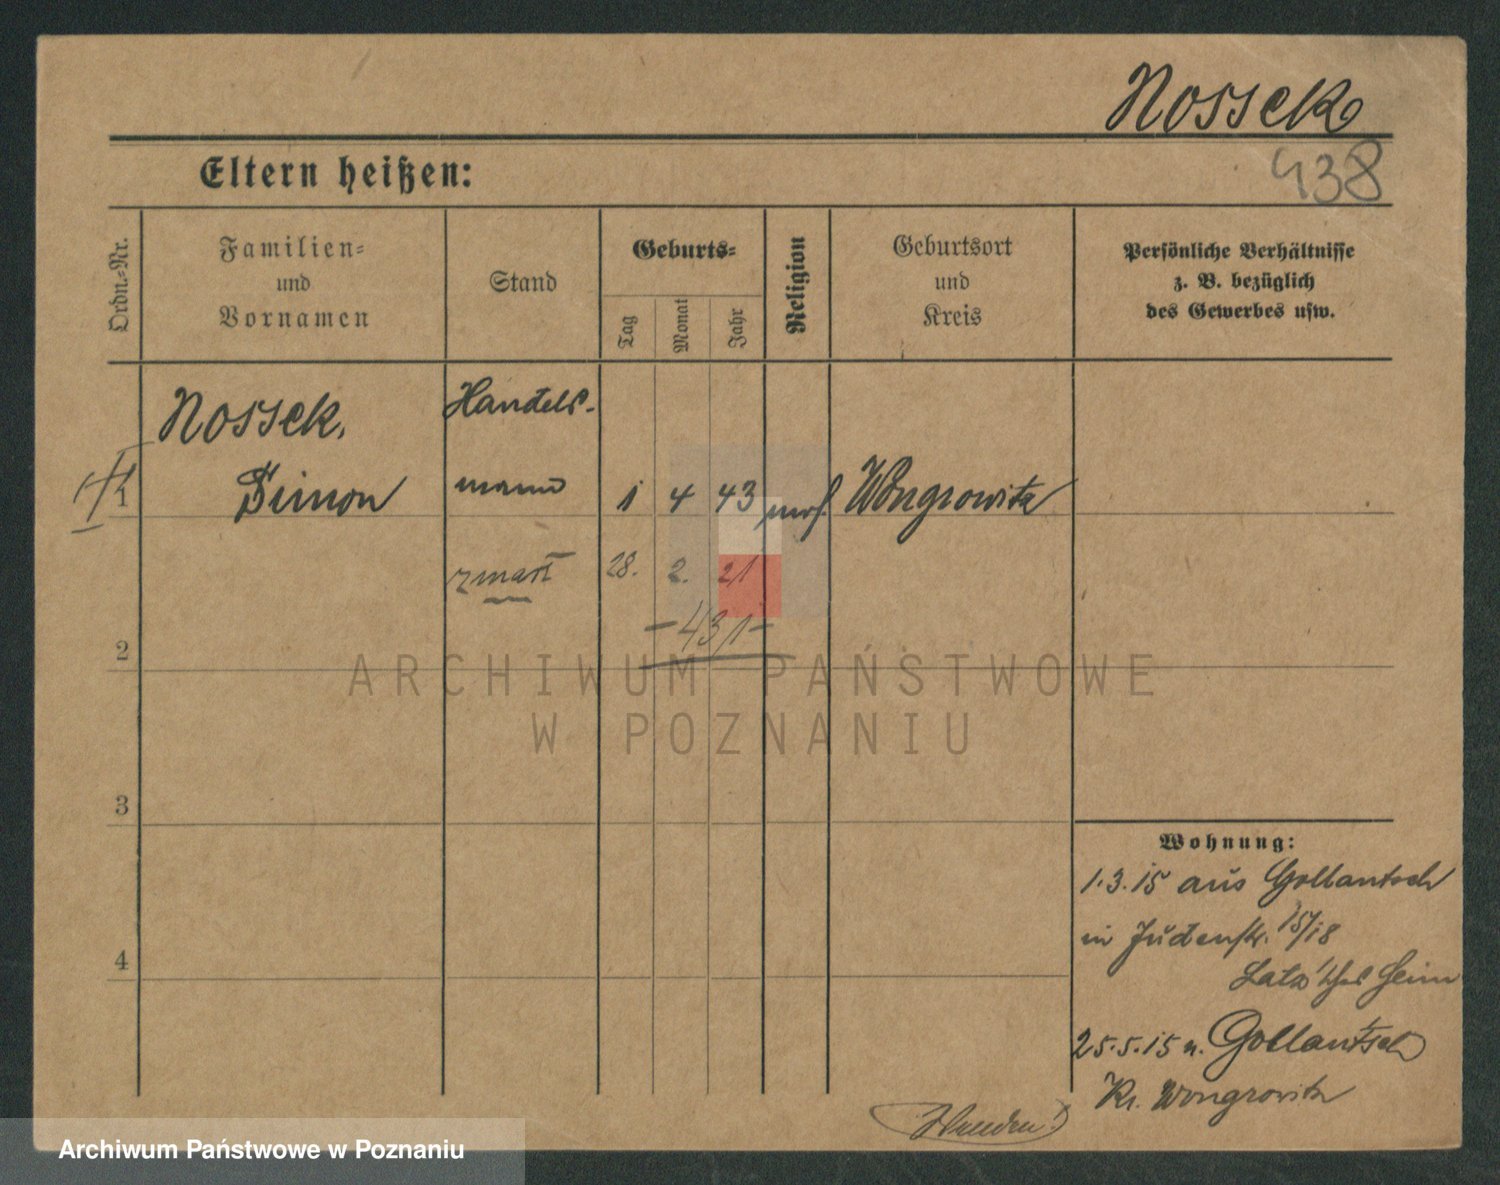 Nossek
438
Eltern heißen:
Ordn.-Nr.
Familien-
und
Vornamen
Stand
Geburts-
Tag
Monat
Jahr
Religion
Geburtsort
und
Kreis
Persönliche Verhältnisse
z. B. bezüglich
des Gewerbes usw.
Nossek,
Handels-
1
Simon
mann
1
4
43
mos.
Wongrowitz
zmarł
28.
2.
21
2
- 431 -
ARCHIWUM PAŃSTWOWE
W POZNANIU
3
Wohnung:
1.3.15 aus Gollantsch
in Judenstr. 15/18
4
Latz'sches Heim
25.5.15 n. Gollantsch
Kr. Wongrowitz
Archiwum Państwowe w Poznaniu